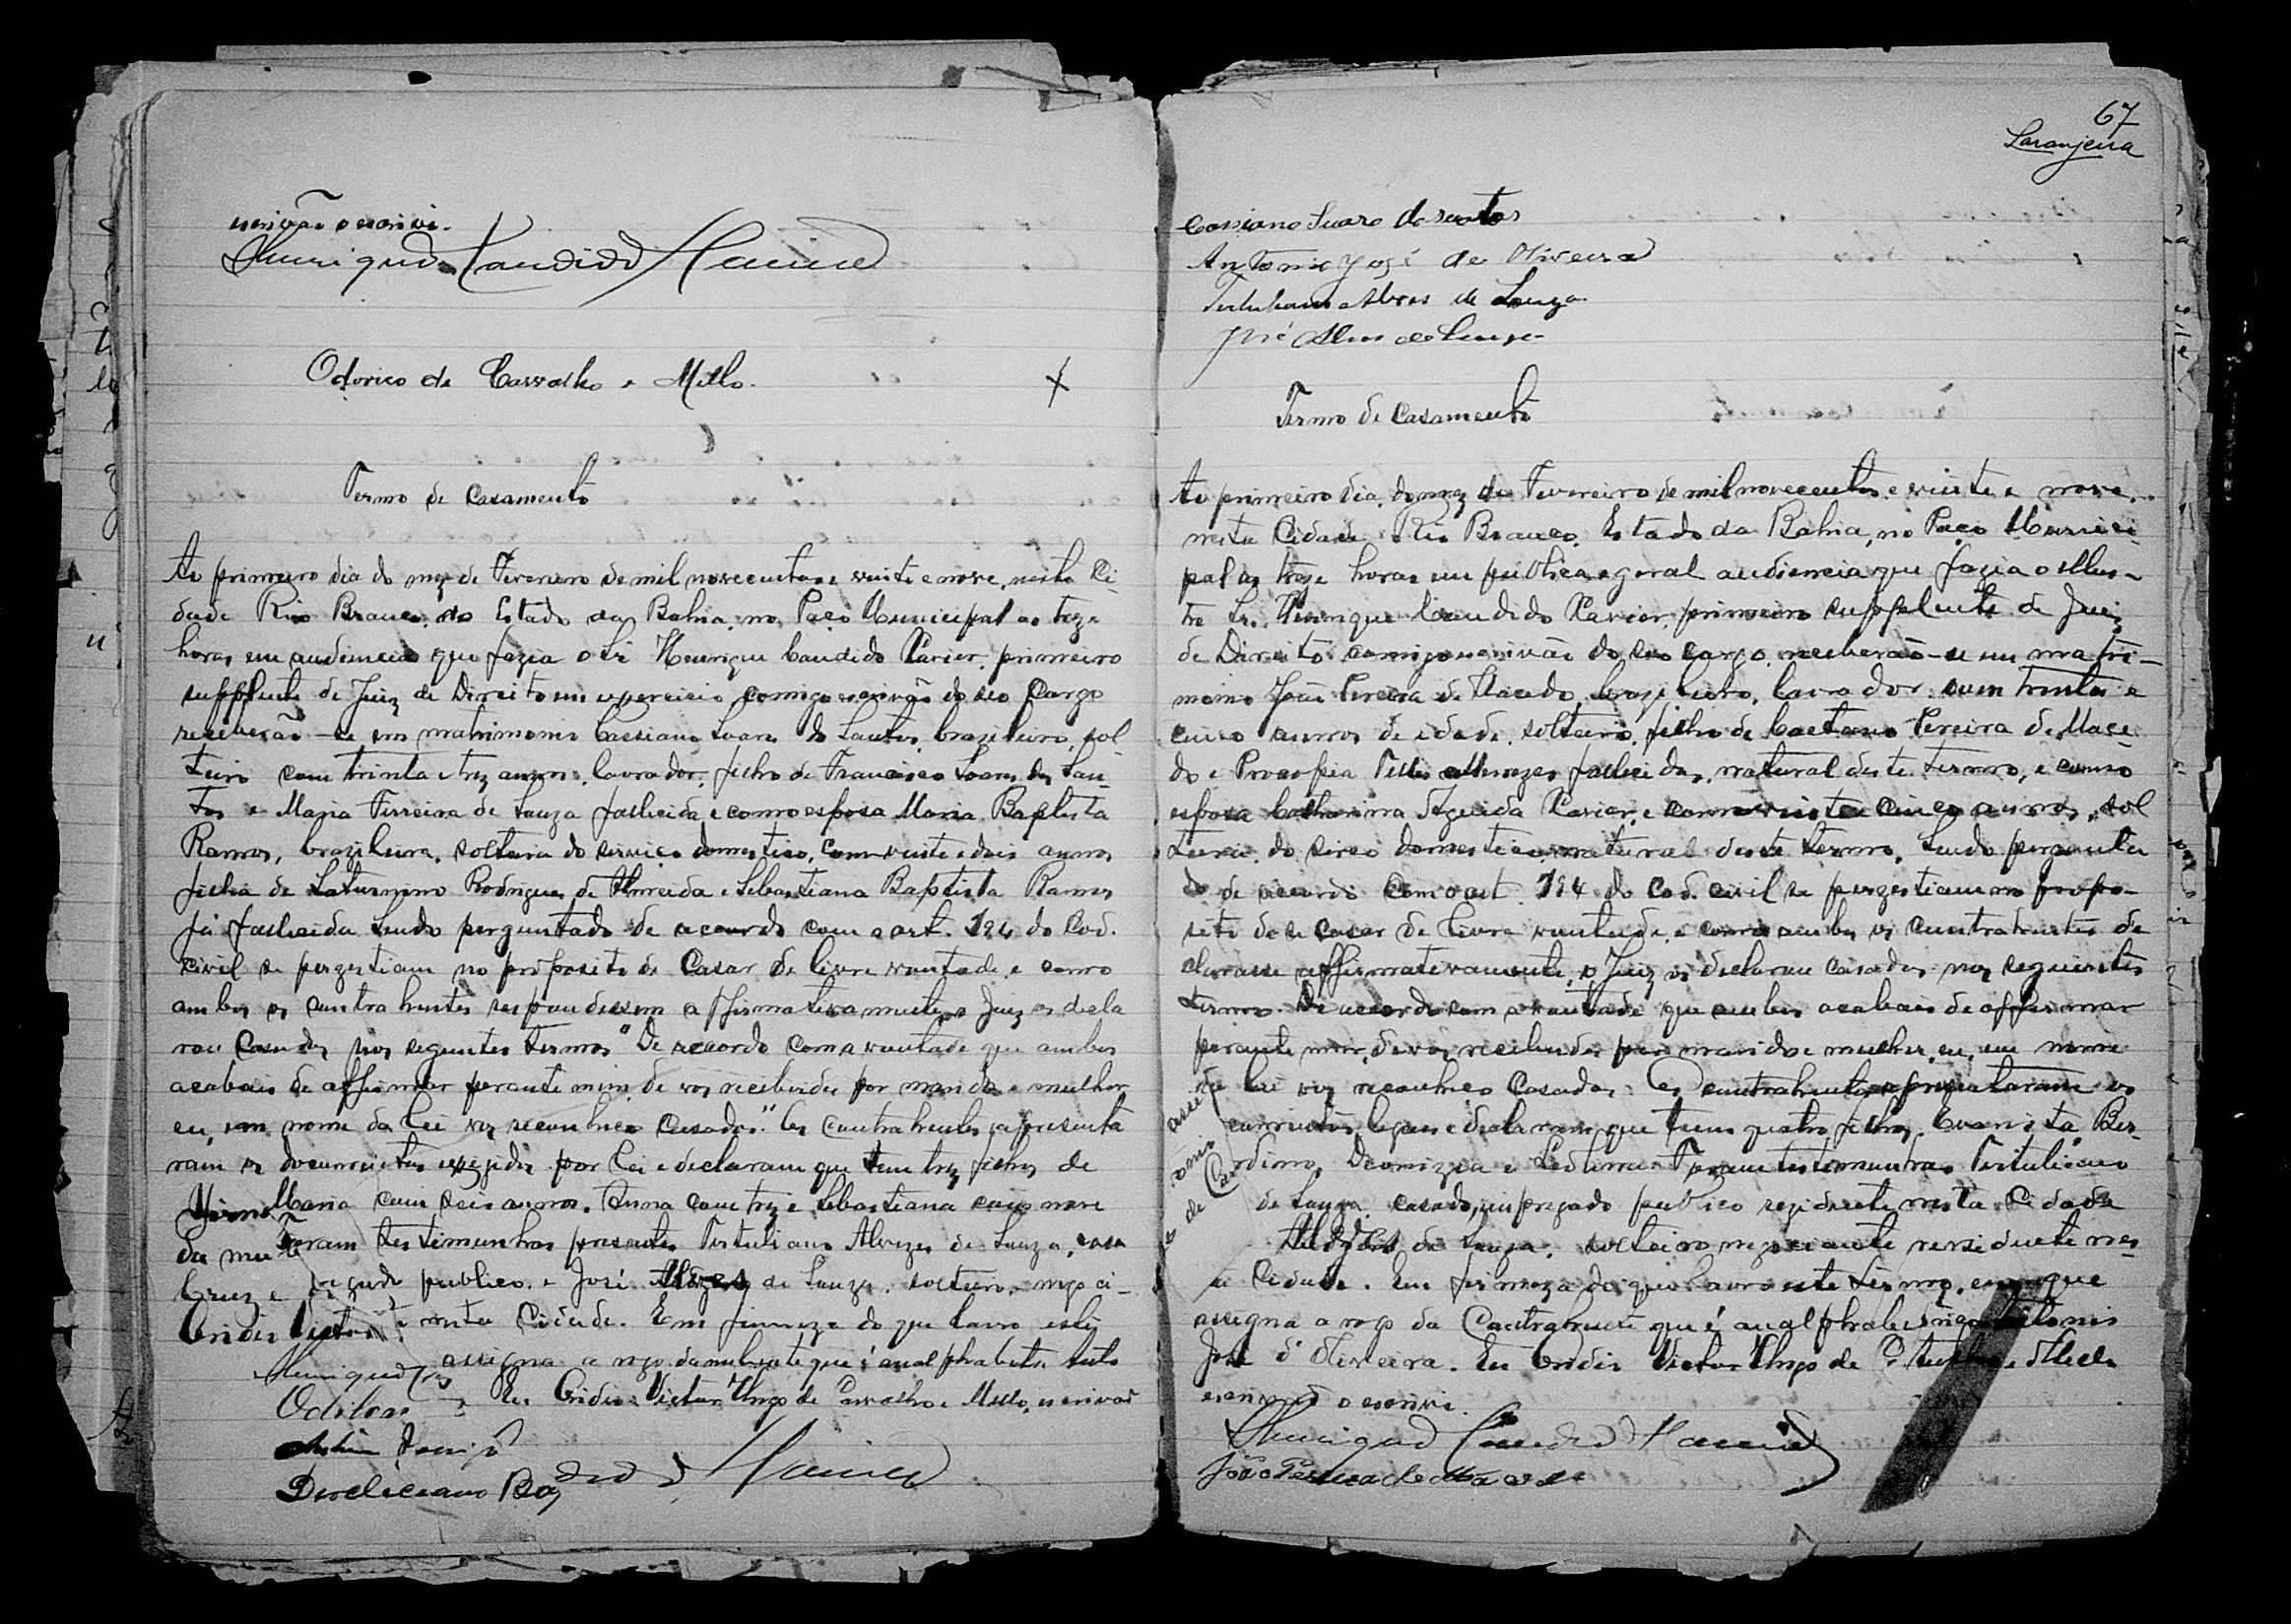 escrivão o escrivi.
Henrique Candido Xavier
Odorico de Carvalho e Mello.
Termo de Casamento
Ao primeiro dia do mez de Fevereiro de mil novecentos e vinte e nove, nesta Ci-
dade Rio Branco do Estado da Bahia, no Paço Municipal as treze
horas em audiencia que fazia o Sr Henrique Candido Xavier, primeiro
supplente de Juiz de Direito em exercicio comigo escrivão do seo Cargo
receberão-se em matrimonio Cassiano Soares do Santos, brazileiro, sol
teiro com trinta e trez annos, lavrador, filho de Francisco Soares dos San-
tos e Maria Ferreira de Souza fallecida e como esposa Maria Baptista
Ramos, brazileira, solteira do serviço domestico, com vinte e dois annos
filha de Saturnino Rodrigues de Almeida e Sebastiana Baptista Ramos
já fallecida sendo perguntado de accordo com o art. 194 do Cod.
Civil se perzestiam no proposito de Casar de livre vontade e como
ambos os contrahentes respondessem affirmativamente o Juiz os decla
rou Casados nos seguintes termos "De accordo com a vontade que ambos
acabais de affirmar perante mim, de vos receberdes por marido e mulher
eu, em nome da lei vos reconheço Casados." Os Contrahentes apresenta
ram os documentos exegidos por lei e declaram que tem trez filhos de
Maria com seis annos, Anna com trez e Sebastiana com nove
da me Foram testimunhas presentes Tertuliano Alvezes de Souza, casa
Cruz e egado publico, e José Alvezes de Souza, solteiro, nego ci-
Oridis Victor nesta Cidade. Em firmeza do que lavro este
assigna a rogo da nubente que é analphabeta
Henrique
Odilon Eu Oridis Victor Hugo de Carvalho e Mello, escrivão
Diocleciano Ba dido Xavier
67
Laranjeira
Cassiano Suaro do santos
Antonio José de Oliveira
Tertuliano Alves de Souza
José Alves de Souza
Termo de Casamento
Ao primeiro dia do mez de Fevereiro de mil novecentos e vinte e nove,
nesta Cidade Rio Branco, Estado da Bahia, no Paço Munici-
pal as treze horas em publica e geral audiencia que fazia o Illus-
tre Sr. Henrique Candido Xavier, primeiro supplente de Juiz
de Direito comigo escrivão do seo cargo, receberão-se em matri-
monio João Pereira de Macedo, brazileiro, lavrador, com trinta e
cinco annos de idade, solteiro, filho de Caetano Pereira de Mace-
do e Procopia Telles Menezes fallecidos, natural deste termo, e como
esposa Catharina Agueida Xavier, e com vinte e cinco annos, sol
teira, do servço domestico natural deste termo, Sendo pergunta
do de accordo com o art. 194 do Cod. civil se perzestiam no propo-
sito de se casar de livre vontade, e como ambos os contrahentes de
clarasse affirmativamente, o Juiz os declarou casados nos seguintes
termos. De accordo com a vontade que ambos acabais de affirmar
perante mim, de vos receberdes por marido e mulher, eu, em nome
da lei vos reconheço Casados. Os contrahentes apresentaram os
cumentos legaes e declaram que tem quatro filhos, Evarista, Ber-
rdino, Deonizia e Foram testemunhas Tertuliano
de Souza, casado, empregado publico rezidente nesta Cidade
Alvezes de Souza, solteiro negociante rezidente nes-
ta Cidade. Em firmeza do que lavro este termo, em que
assigna a rogo da Contrahente que é analphabeta Antonio
José d' Oliveira. Eu Oridis Victor Hugo de Carvalho e Mello
escrivão o escrivi.
Henrique Candido Xavier
João Pereira de Macedo